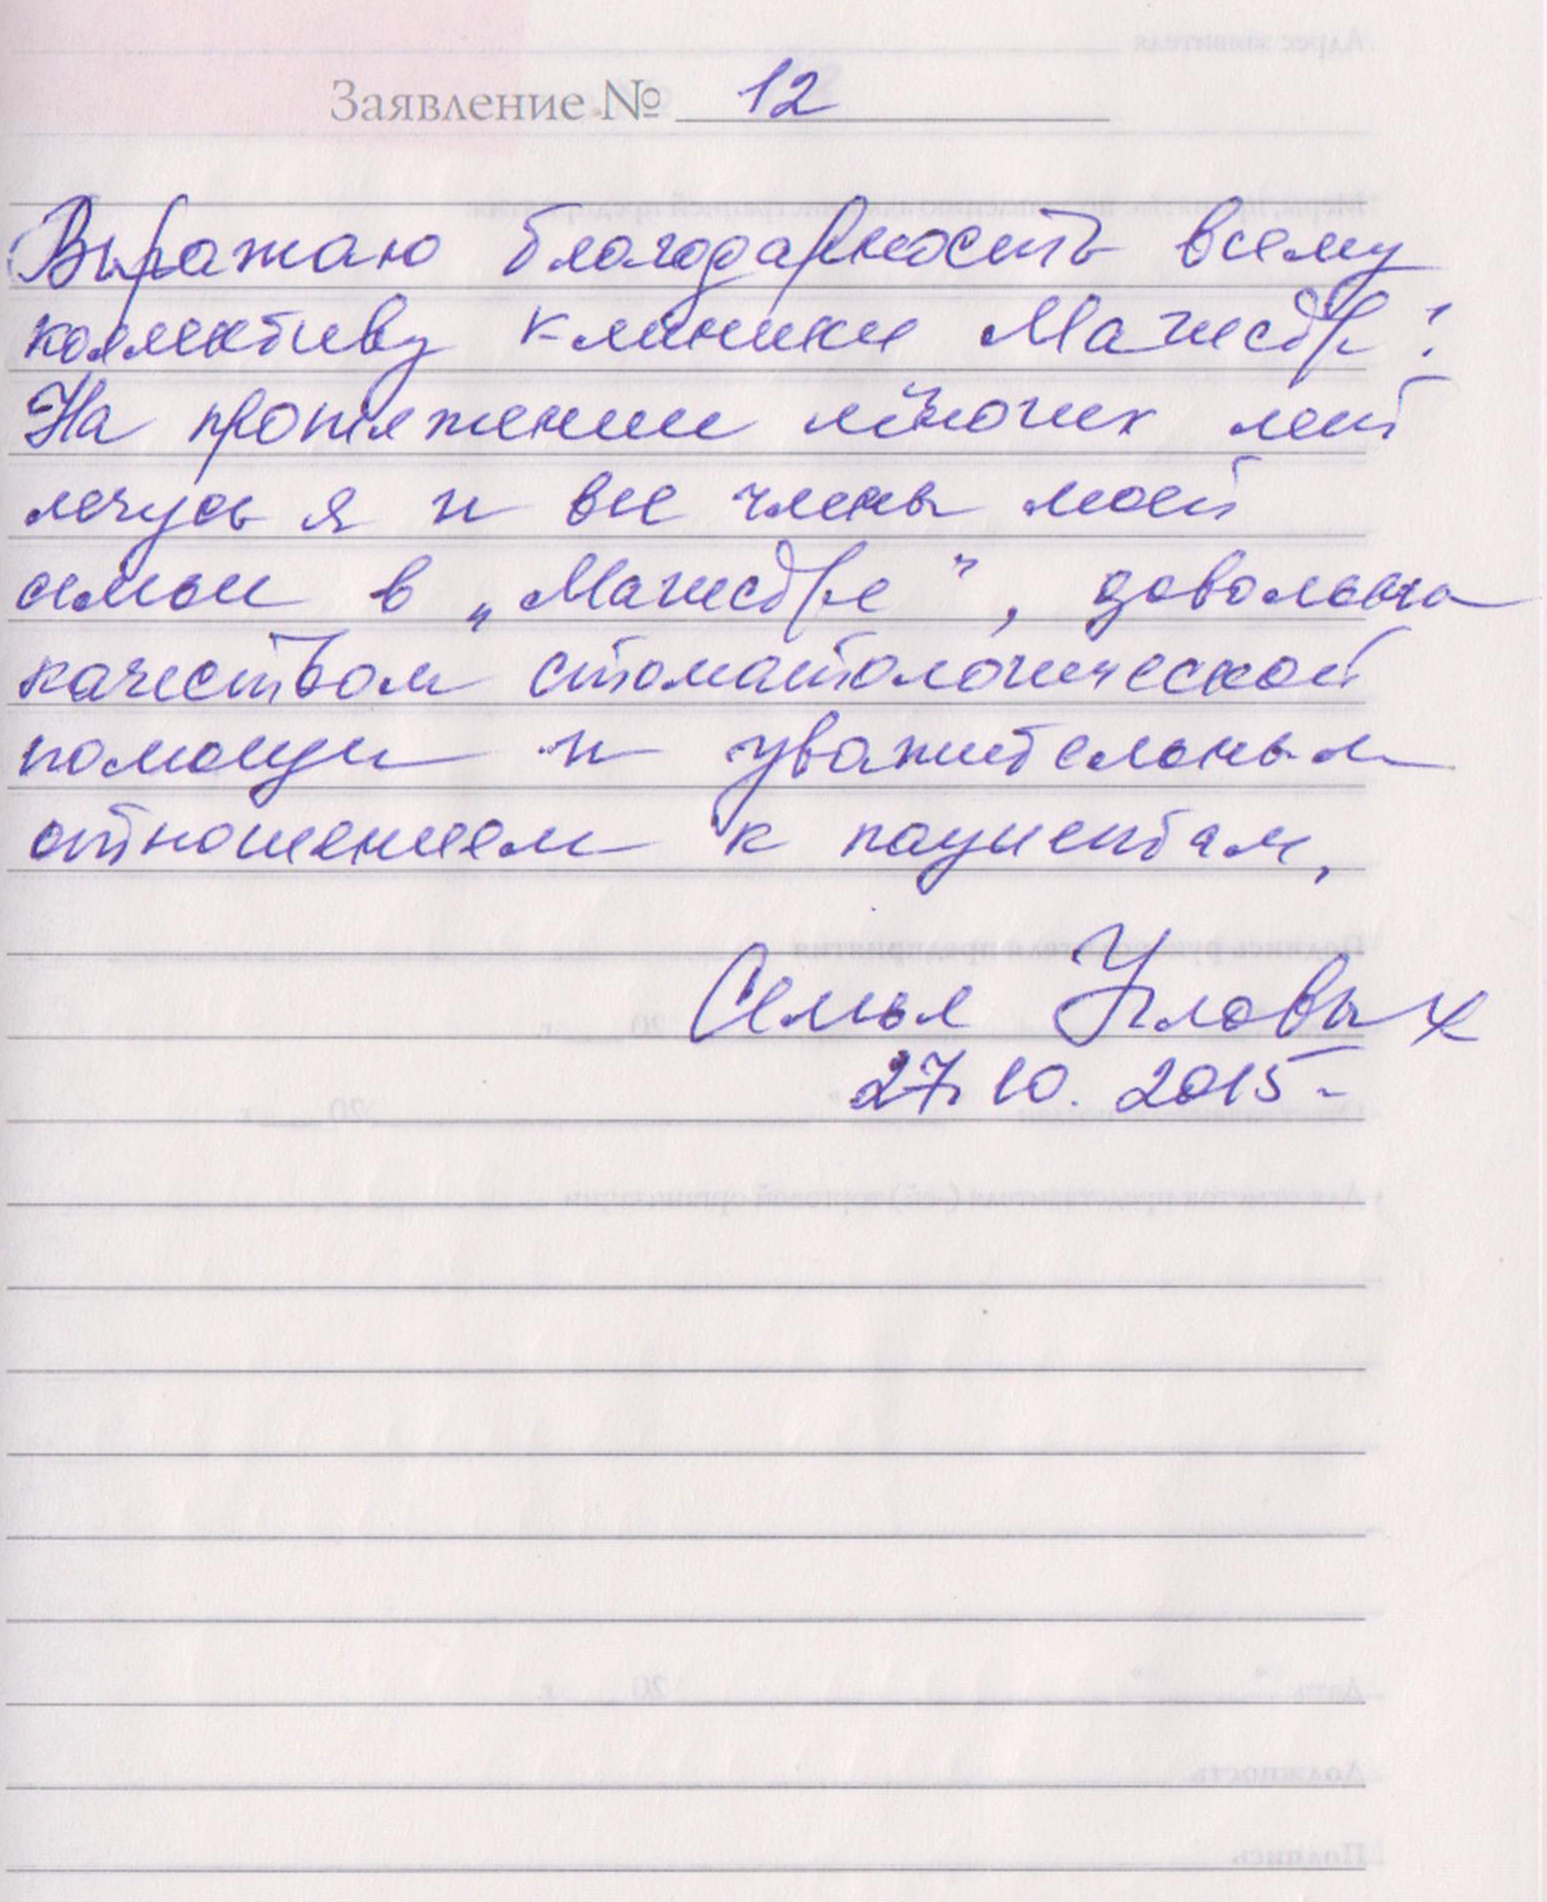 Заявление № 12
Выражаю благодарность всему
коллективу клиники Магистр!
На протяжении многих лет
лечусь я и все члены моей
семьи в „Магистре", довольна
качеством стоматологической
помощи и уважительным
отношением к пациентам,
Семья Угловых
27.10.2015